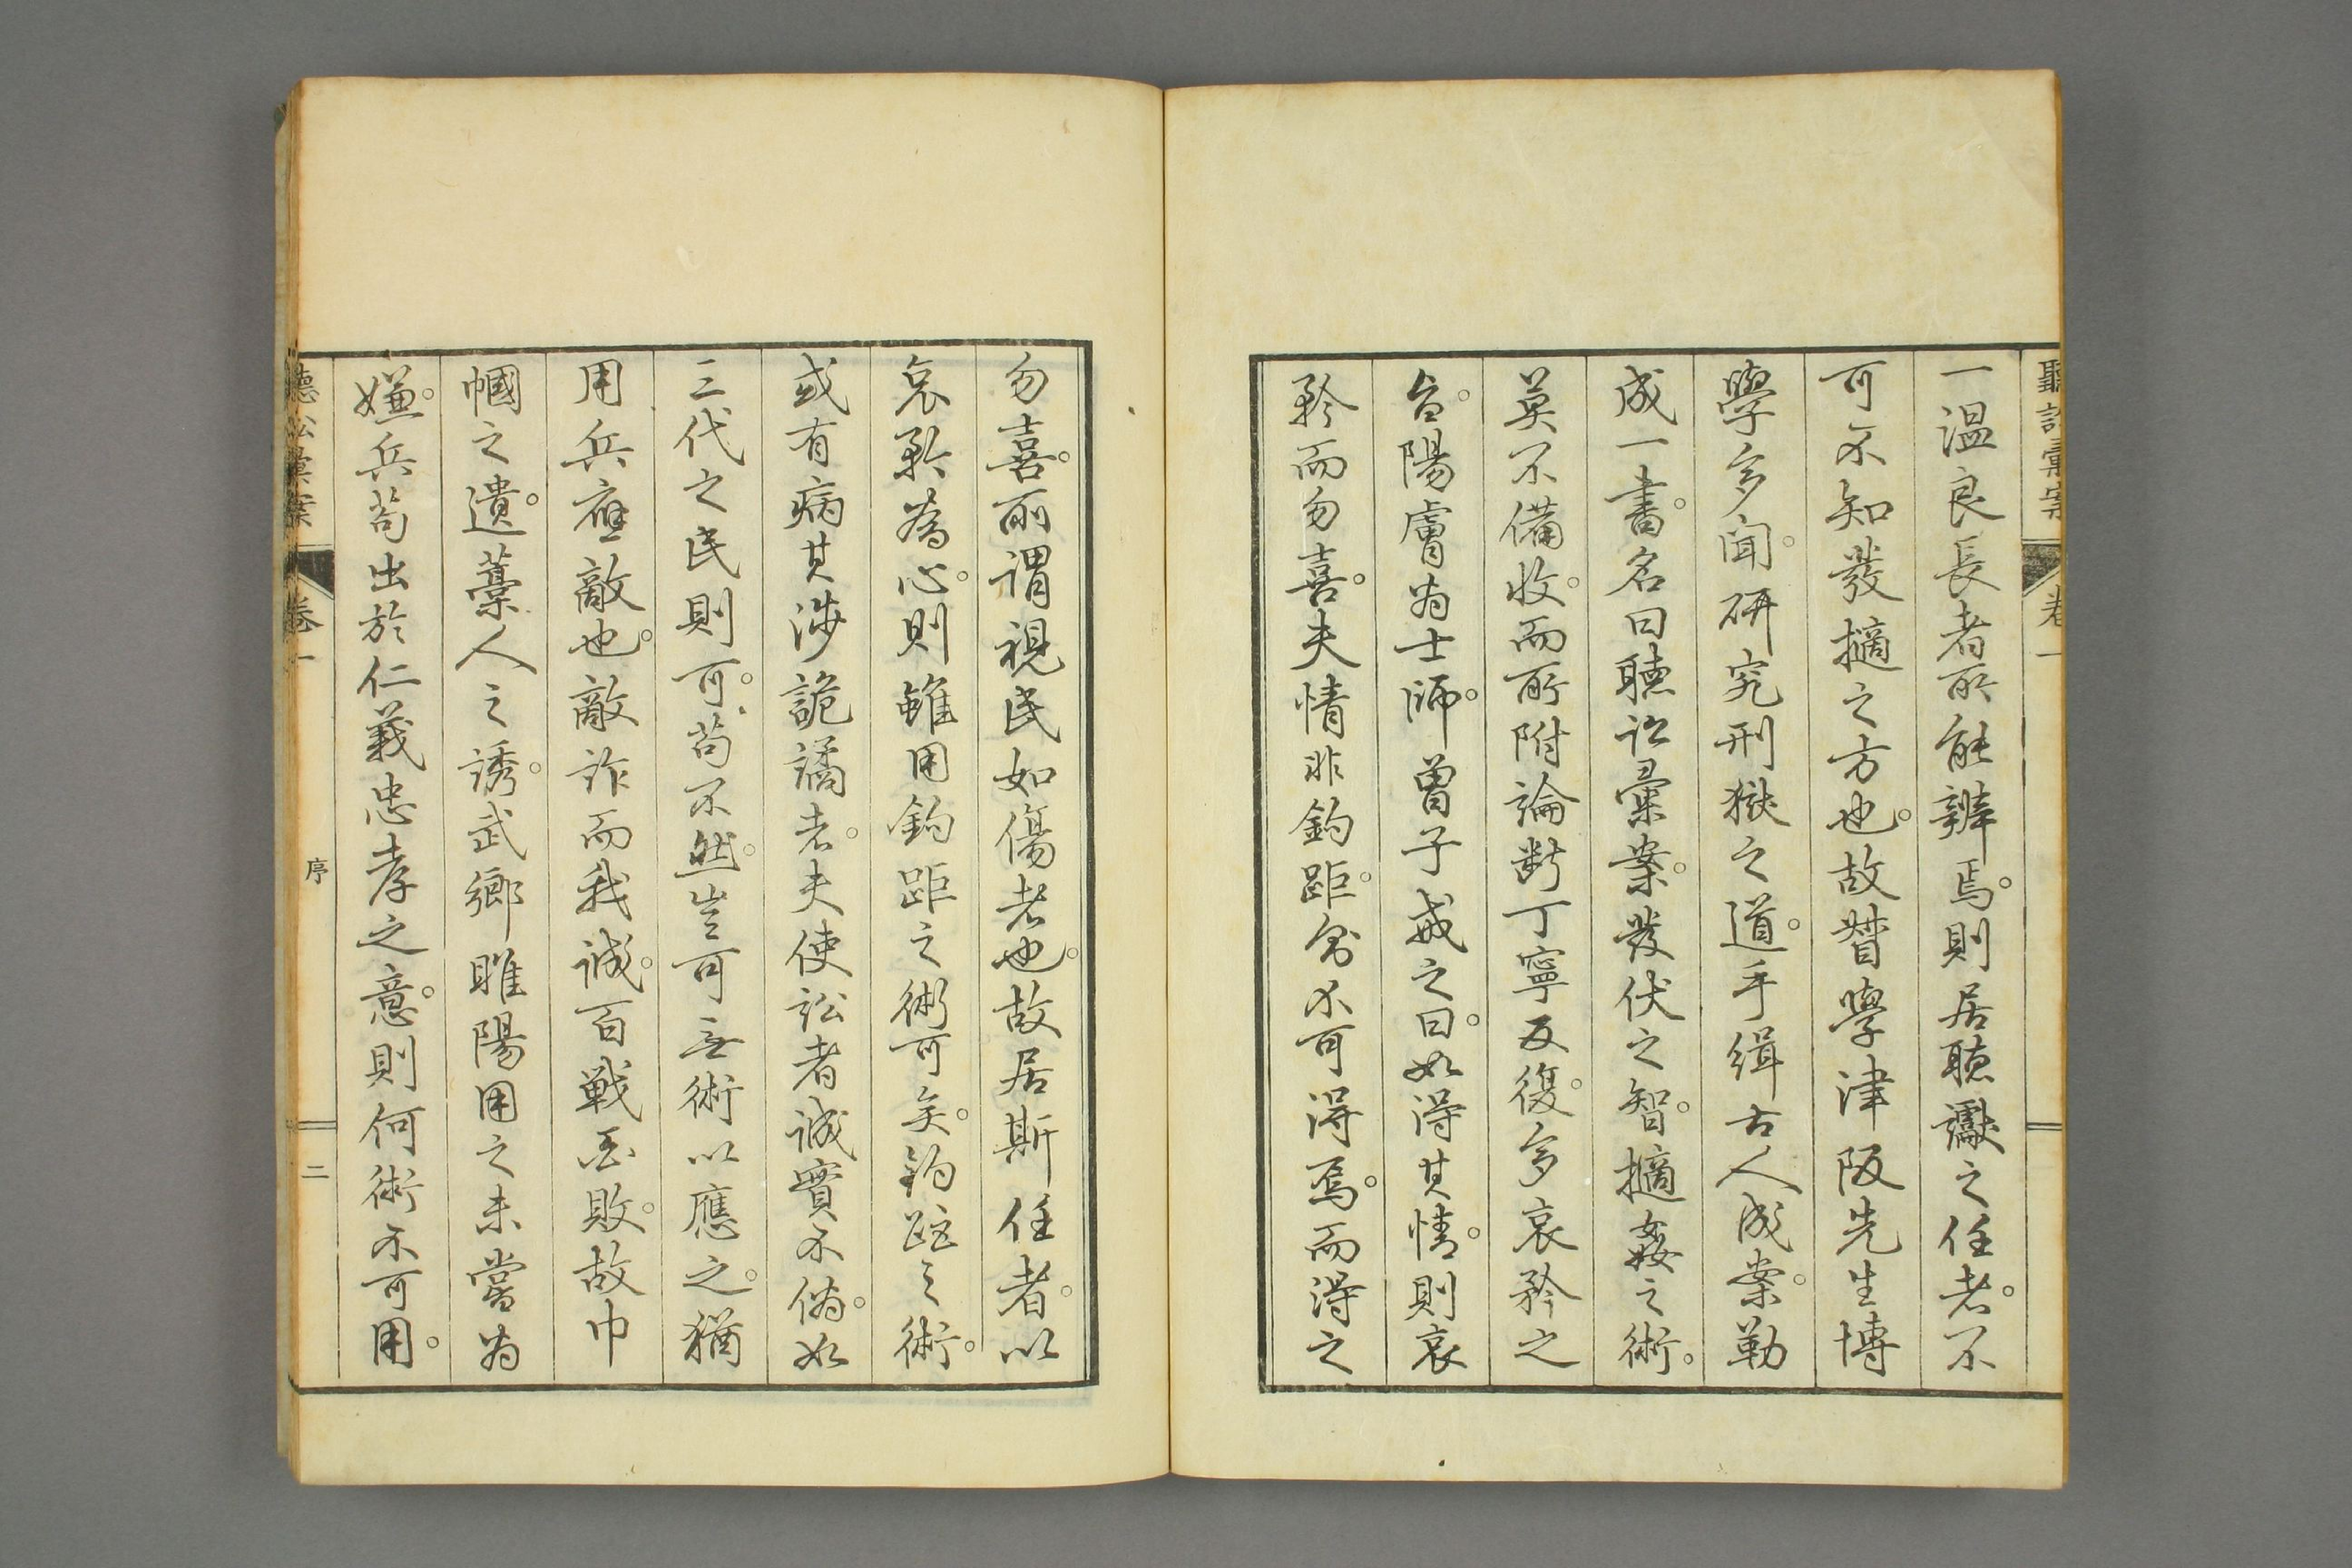 聽訟彙案
卷一
一溫良長者所能辨焉。則居聽讞之任者。不
可不知發擿之方也。故督學津阪先生博
學多聞。研究刑獄之道。手緝古人成案。勒
成一書。名曰聽訟彙案。發伏之智。擿姦之術。
莫不備收。而所附論斷丁寧反復。多哀矜之
言。陽膚為士師。曾子戒之曰。如得其情。則哀
矜而勿喜。夫情非鈎距。多不可得焉。而得之
勿喜。所謂視民如傷者也。故居斯任者。以
哀矜為心。則雖用鈎距之術可矣。鈎距之術。
或有病其涉詭譎者。夫使訟者誠實不偽。如
三代之民則可。苟不然。豈可無術以應之。猶
用兵應敵也。敵詐而我誠。百戰百敗。故巾
幗之遺。藁人之誘。武鄉睢陽用之未嘗為
嫌。兵苟出於仁義忠孝之意。則何術不可用。
聽訟彙案
卷一
序
二